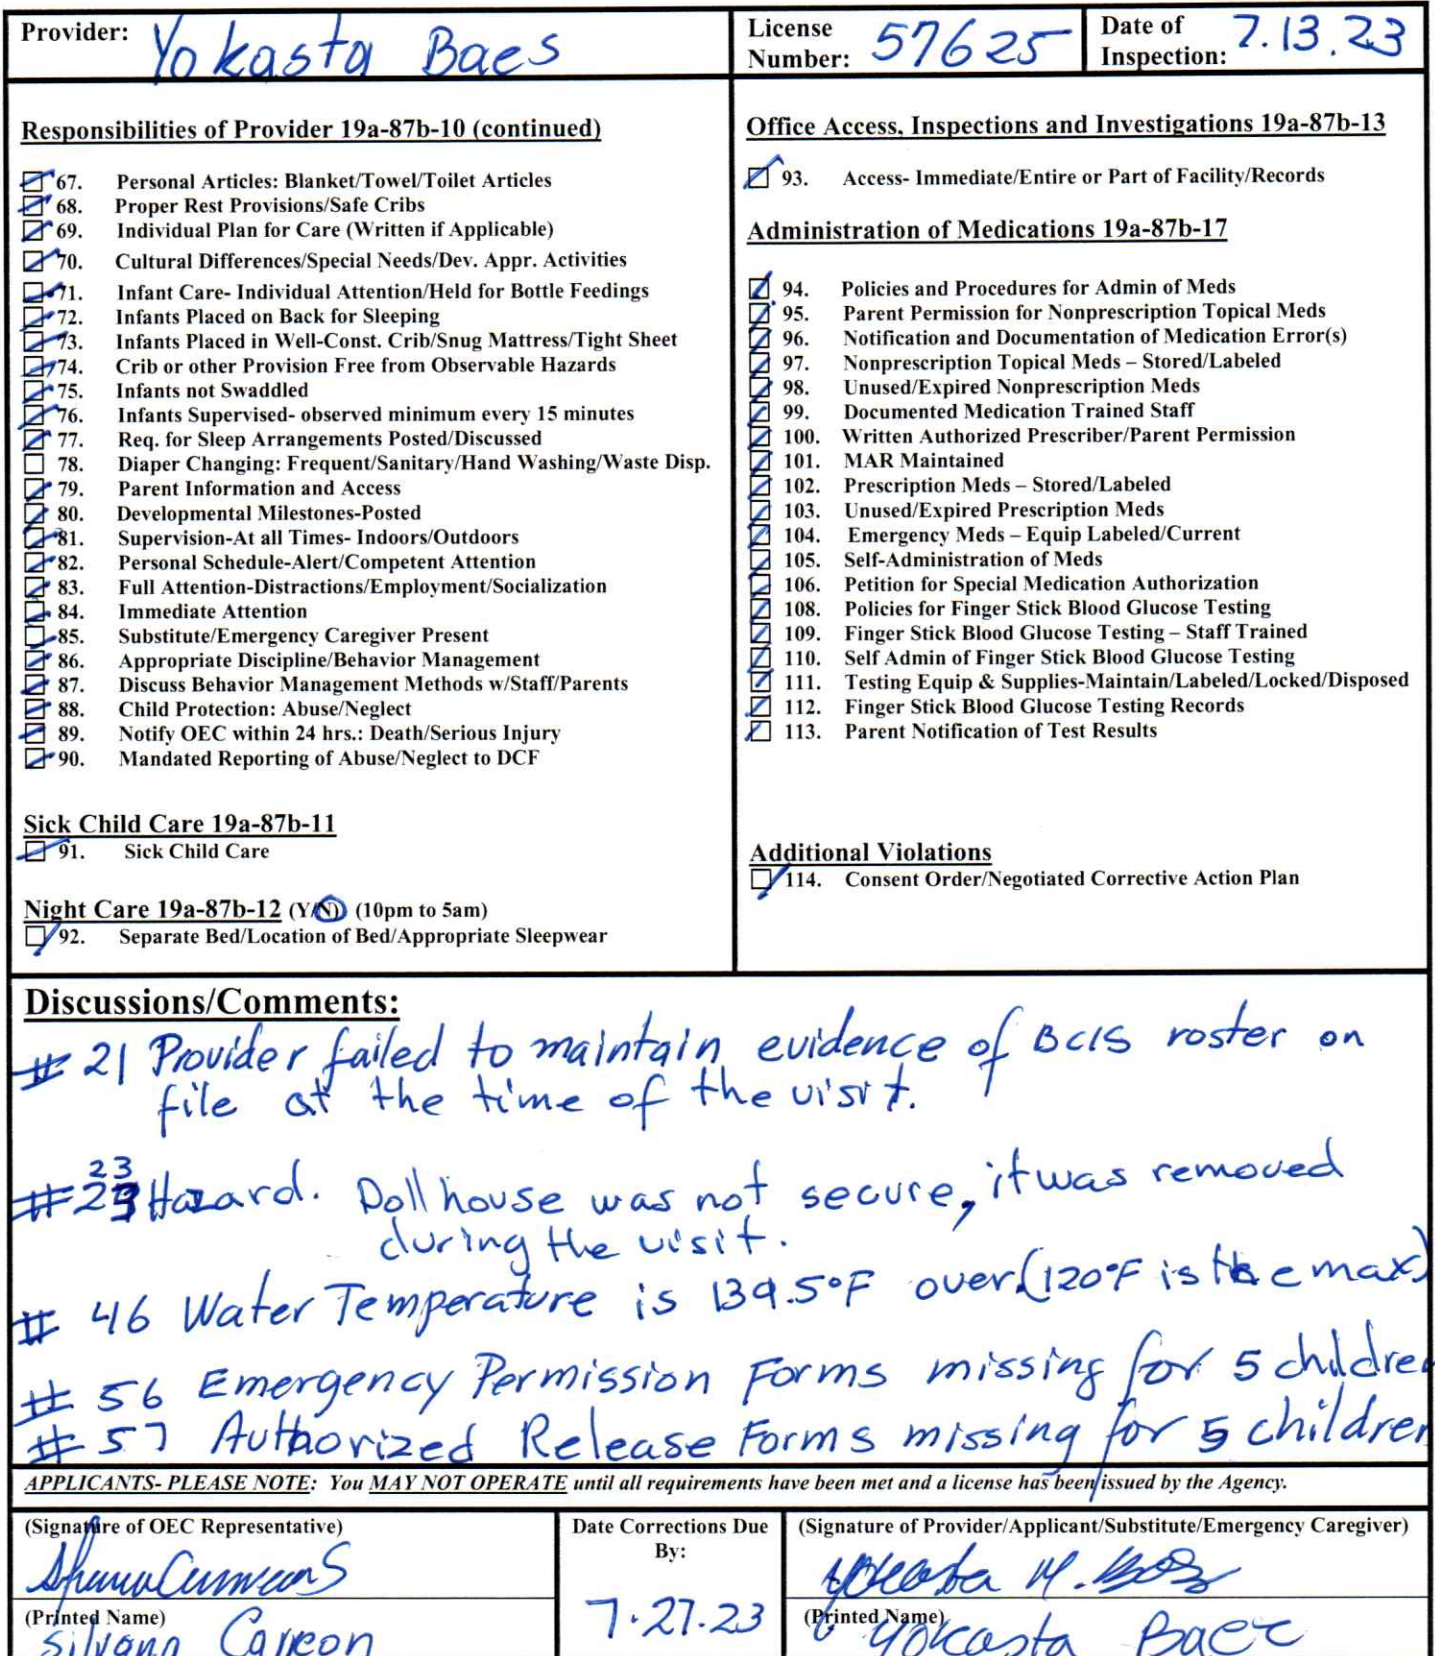 Provider: Yokasta Baes
License Number: 57625
Date of Inspection: 7.13.23
Responsibilities of Provider 19a-87b-10 (continued)
67. Personal Articles: Blanket/Towel/Toilet Articles
68. Proper Rest Provisions/Safe Cribs
69. Individual Plan for Care (Written if Applicable)
70. Cultural Differences/Special Needs/Dev. Appr. Activities
71. Infant Care- Individual Attention/Held for Bottle Feedings
72. Infants Placed on Back for Sleeping
73. Infants Placed in Well-Const. Crib/Snug Mattress/Tight Sheet
74. Crib or other Provision Free from Observable Hazards
75. Infants not Swaddled
76. Infants Supervised- observed minimum every 15 minutes
77. Req. for Sleep Arrangements Posted/Discussed
78. Diaper Changing: Frequent/Sanitary/Hand Washing/Waste Disp.
79. Parent Information and Access
80. Developmental Milestones-Posted
81. Supervision-At all Times- Indoors/Outdoors
82. Personal Schedule-Alert/Competent Attention
83. Full Attention-Distractions/Employment/Socialization
84. Immediate Attention
85. Substitute/Emergency Caregiver Present
86. Appropriate Discipline/Behavior Management
87. Discuss Behavior Management Methods w/Staff/Parents
88. Child Protection: Abuse/Neglect
89. Notify OEC within 24 hrs.: Death/Serious Injury
90. Mandated Reporting of Abuse/Neglect to DCF
Sick Child Care 19a-87b-11
91. Sick Child Care
Night Care 19a-87b-12 (Y/N) (10pm to 5am)
92. Separate Bed/Location of Bed/Appropriate Sleepwear
Office Access, Inspections and Investigations 19a-87b-13
93. Access- Immediate/Entire or Part of Facility/Records
Administration of Medications 19a-87b-17
94. Policies and Procedures for Admin of Meds
95. Parent Permission for Nonprescription Topical Meds
96. Notification and Documentation of Medication Error(s)
97. Nonprescription Topical Meds – Stored/Labeled
98. Unused/Expired Nonprescription Meds
99. Documented Medication Trained Staff
100. Written Authorized Prescriber/Parent Permission
101. MAR Maintained
102. Prescription Meds – Stored/Labeled
103. Unused/Expired Prescription Meds
104. Emergency Meds – Equip Labeled/Current
105. Self-Administration of Meds
106. Petition for Special Medication Authorization
108. Policies for Finger Stick Blood Glucose Testing
109. Finger Stick Blood Glucose Testing – Staff Trained
110. Self Admin of Finger Stick Blood Glucose Testing
111. Testing Equip & Supplies-Maintain/Labeled/Locked/Disposed
112. Finger Stick Blood Glucose Testing Records
113. Parent Notification of Test Results
Additional Violations
114. Consent Order/Negotiated Corrective Action Plan
Discussions/Comments:
# 21 Provider failed to maintain evidence of BCIS roster on
file at the time of the visit.
#23 Hazard. Doll house was not secure, it was removed
during the visit.
# 46 Water Temperature is 139.5°F over (120°F is the max)
# 56 Emergency Permission Forms missing for 5 children
# 57 Authorized Release Forms missing for 5 children
APPLICANTS- PLEASE NOTE: You MAY NOT OPERATE until all requirements have been met and a license has been issued by the Agency.
(Signature of OEC Representative)
(Printed Name)
Silvana Carreon
Date Corrections Due
By:
7.27.23
(Signature of Provider/Applicant/Substitute/Emergency Caregiver)
Yokasta M.
(Printed Name)
Yokasta Baez